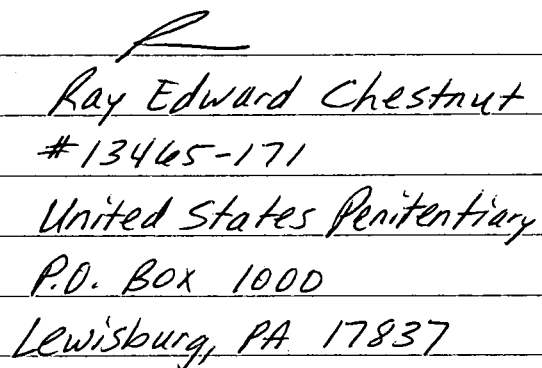 Ray Edward Chestnut
#13465-171
United States Penitentiary
P.O. Box 1000
Lewisburg, PA 17837